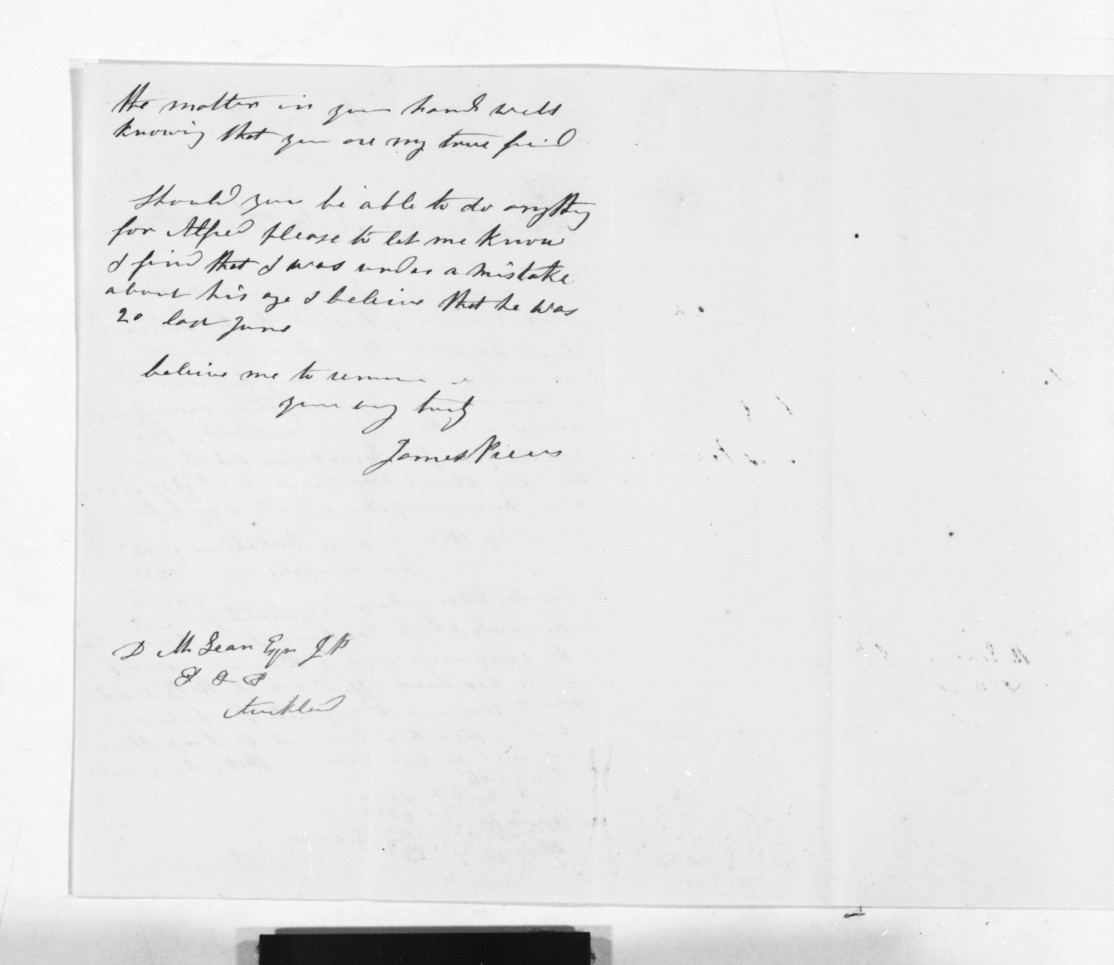 the matter in your hands well
knowing that you are my true friend
Should you be able to do anything
for Alfred please to let me know
I find that I was under a mistake
about his age I believe that he was
20 last June
believe me to remain
your very truly
James Preece
D McLean Esqr J P
Auckland